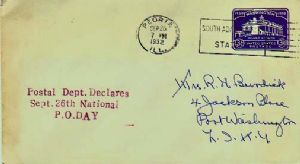 PEORIA
SEP 26
7 PM
1932
ILL.
SOUTH
STAT
Postal Dept. Declares
Sept. 26th National
P.O.DAY
Mrs. R. H. Burdick
4 Jackson Place
Port Washington
L. I. N. Y